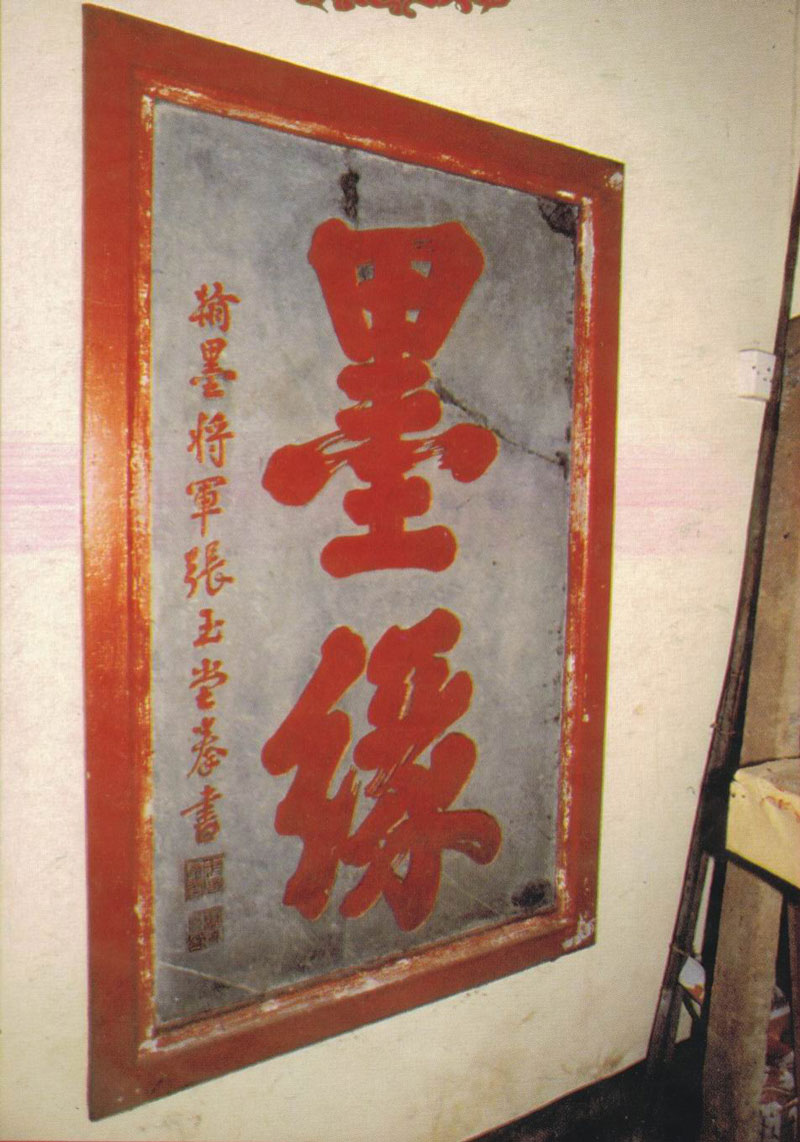 墨緣
翰墨將軍張玉堂拳書